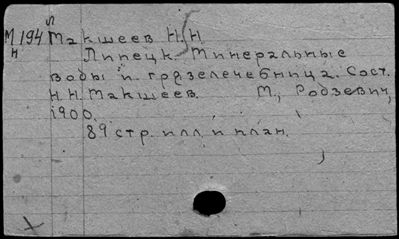 М 194 Макшеев Н.Н.
н Липецк. Минеральные
воды и грязелечебница. Сост.
Н.Н. Макшеев. М., Родзевич,
1900.
89 стр. илл. и план.